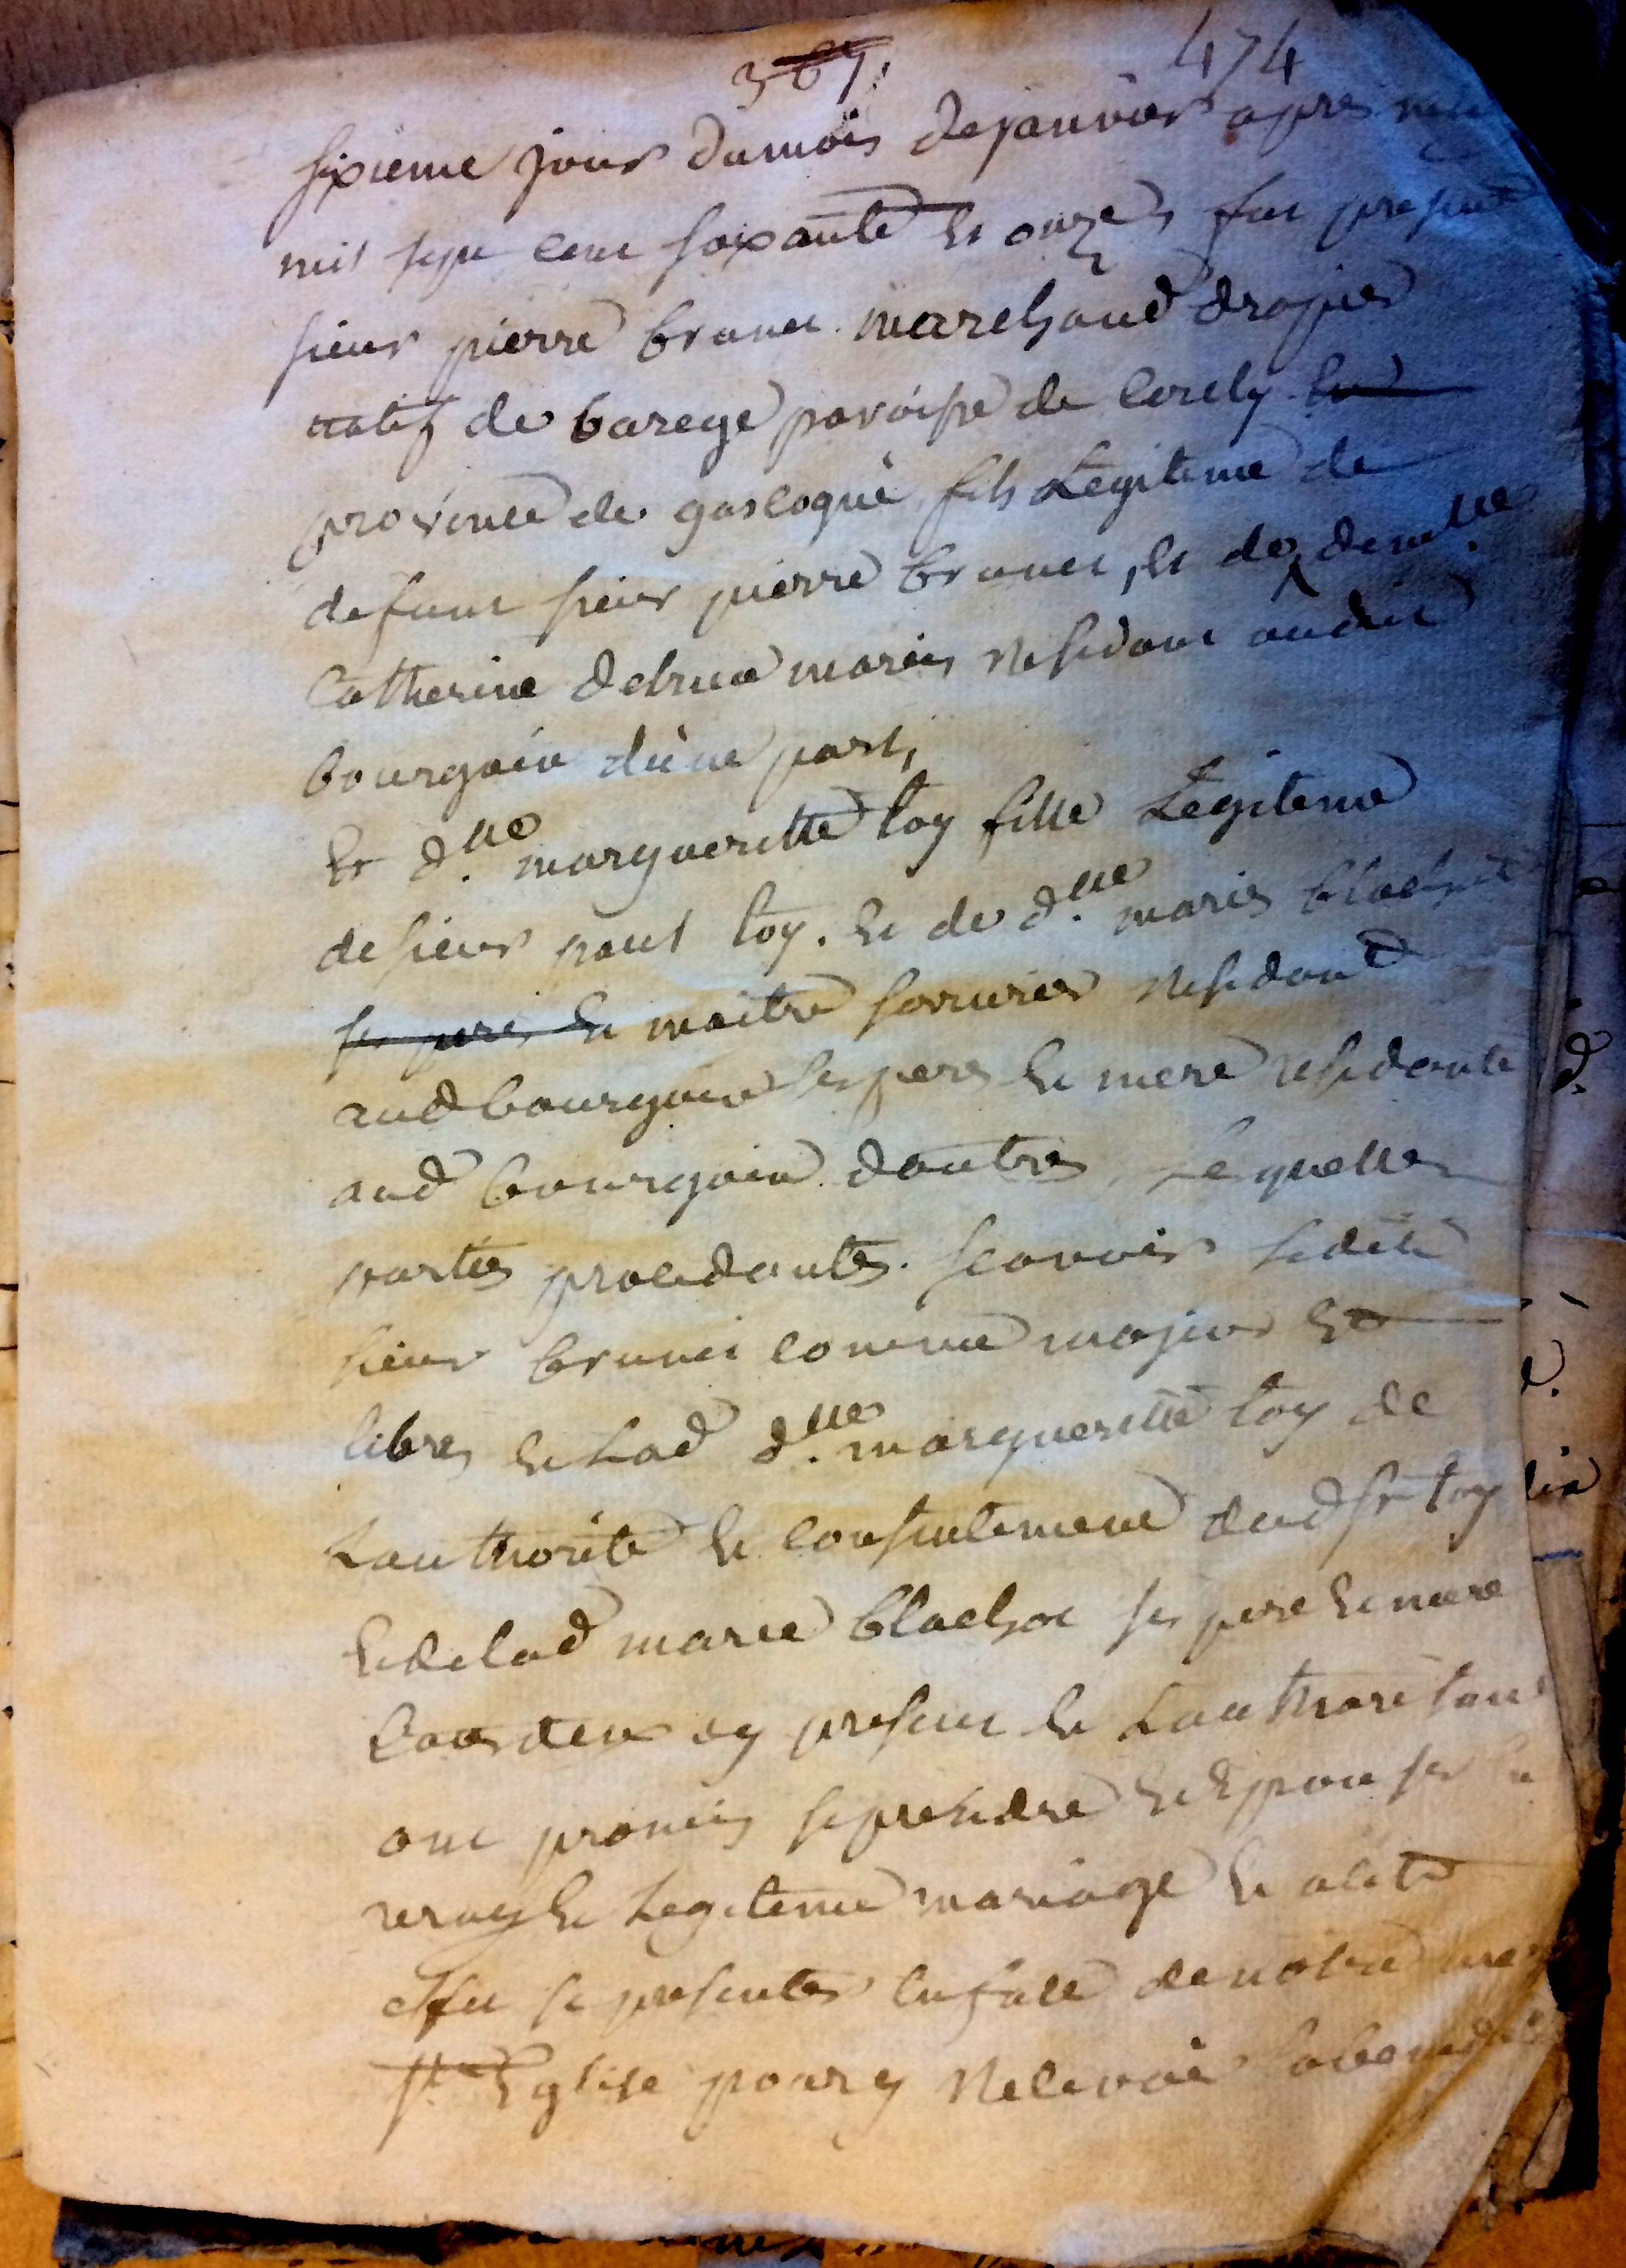 367. 474
sixieme jour du mois de janvier apres midy
mil sept cent soixante et onze, fut present
sieur pierre brunet marchand drapier
natif de barege paroisse de en
province de gascogne, fils Legitime de
defunt sieur pierre brunet, et de demlle
Catherine maries residant audit
bourgoin d'une part,
Et dlle. margueritte Toy fille Legitime
de sieur paul Toy. et de dlle. marie blachot
ses pere et maitre serrurier residant
aud bourgoin ses pere et mere residante
aud bourgoin d'autres, Lesquelles
parties procedantes. scavoir ledit
sieur brunet comme majeur et
libres et Lad dlle. margueritte Toy de
Lauthorité et consentement dud sr Toy
et de lad marie blachot ses pere et mere
tous deux cy present et Lauthorisant
ont promis se prendre et Epouser en
vray et Legitime mariage et a cet
effet se presenter en face de notre mere
ste Eglise pour y recevoir la benedic